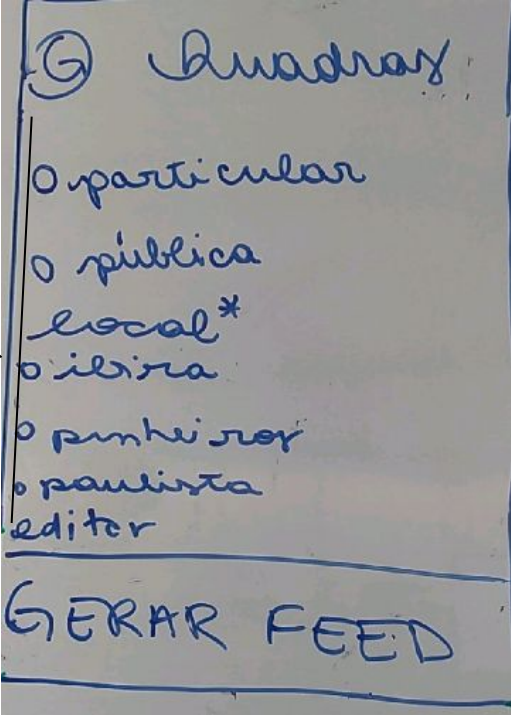 G Quadras
o particular
o pública
local*
o ibira
o pinheiros
o paulista
editar
GERAR FEED